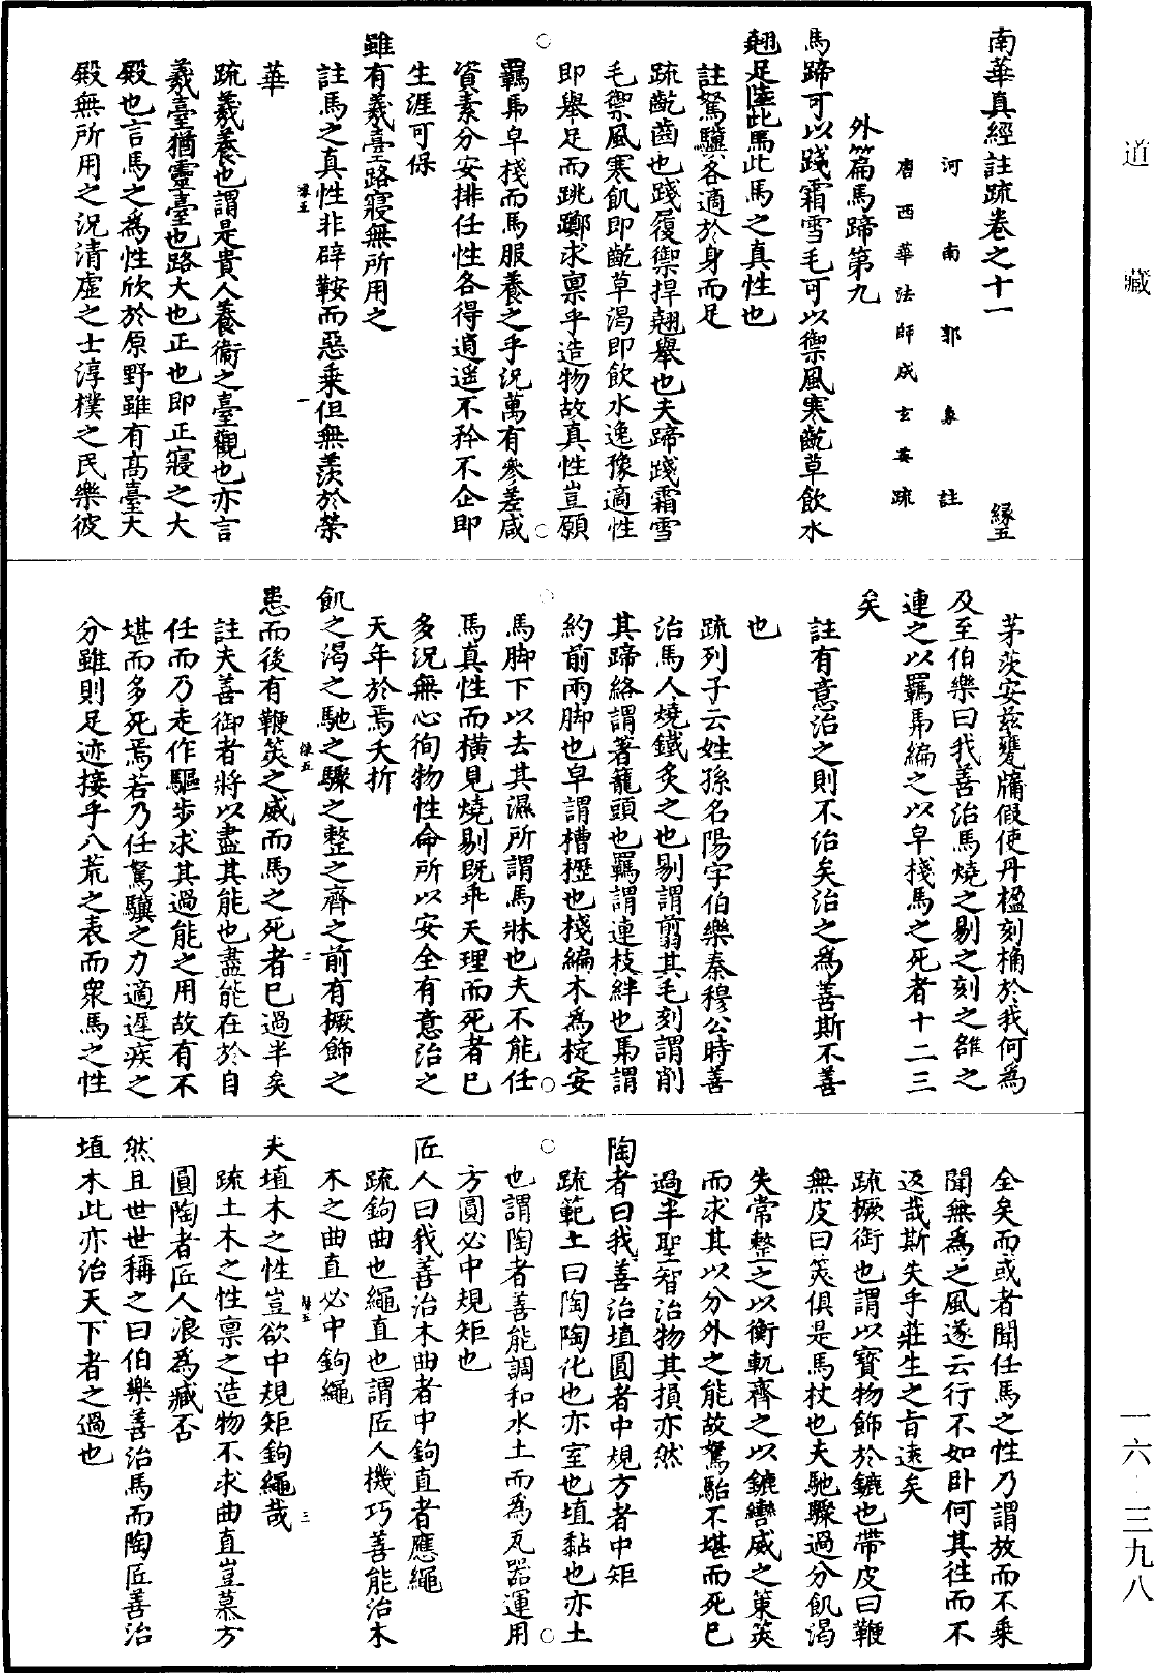 道藏
南華真經註疏卷之十一 緣五
河南郭象註
唐西華法師成玄英疏
外篇馬蹄第九
馬蹄可以踐霜雪毛可以禦風寒齕草飲水
翹足陸此馬此馬之真性也
註駑驥各適於身而足
疏齕齒也踐履禦捍翹舉也夫蹄踐霜雪
毛禦風寒飢即齕草渴即飲水逸豫適性
即舉足而跳躑求稟乎造物故真性豈願
羈馽皁棧而馬服養之乎況萬有參差咸
資素分安排任性各得逍遥不矜不企即
生涯可保
雖有義臺路寢無所用之
註馬之真性非辞鞍而惡乗但無羨於榮
華
緣五 一
疏義養也謂是貴人養衞之臺觀也亦言
義臺猶靈臺也路大也正也即正寢之大
殿也言馬之爲性欣於原野雖有高臺大
殿無所用之況清虛之士淳樸之民樂彼
茅茨安兹甕牖假使丹楹刻桷於我何爲
及至伯樂曰我善治馬燒之剔之刻之雒之
連之以羈馽編之以皁棧馬之死者十二三
矣
註有意治之則不治矣治之爲善斯不善
也
疏列子云姓孫名陽字伯樂秦穆公時善
治馬人燒鐵炙之也剔謂翦其毛刻謂削
其蹄絡謂著籠頭也羈謂連枝絆也馽謂
約前兩脚也皁謂槽櫪也棧編木爲椗安
馬脚下以去其濕所謂馬牀也夫不能任
馬真性而橫見燒剔既乖天理而死者已
多況無心徇物性命所以安全有意治之
天年於焉夭折
飢之渴之馳之驟之整之齊之前有橛飾之
緣五 二
患而後有鞭筴之威而馬之死者已過半矣
註夫善御者將以盡其能也盡能在於自
任而乃走作驅步求其過能之用故有不
堪而多死焉若乃任駑驥之力適遲疾之
分雖則足迹接乎八荒之表而衆馬之性
全矣而或者聞任馬之性乃謂放而不乗
聞無爲之風遂云行不如卧何其往而不
返哉斯失乎莊生之旨遠矣
疏橛銜也謂以寶物飾於鑣也帶皮曰鞭
無皮曰筴俱是馬杖也夫馳驟過分飢渴
失常整之以衡軏齊之以鑣轡威之以策筴
而求其以分外之能故駑駘不堪而死已
過半聖智治物其損亦然
陶者曰我善治埴圓者中規方者中矩
疏範土曰陶陶化也亦室也埴黏也亦土
也謂陶者善能調和水土而爲瓦器運用
方圓必中規矩也
匠人曰我善治木曲者中鉤直者應繩
疏鉤曲也繩直也謂匠人機巧善能治木
木之曲直必中鉤繩
緣五 三
夫埴木之性豈欲中規矩鉤繩哉
疏土木之性禀之造物不求曲直豈慕方
圓陶者匠人浪爲臧否
然且世世稱之曰伯樂善治馬而陶匠善治
埴木此亦治天下者之過也
一六·三九八